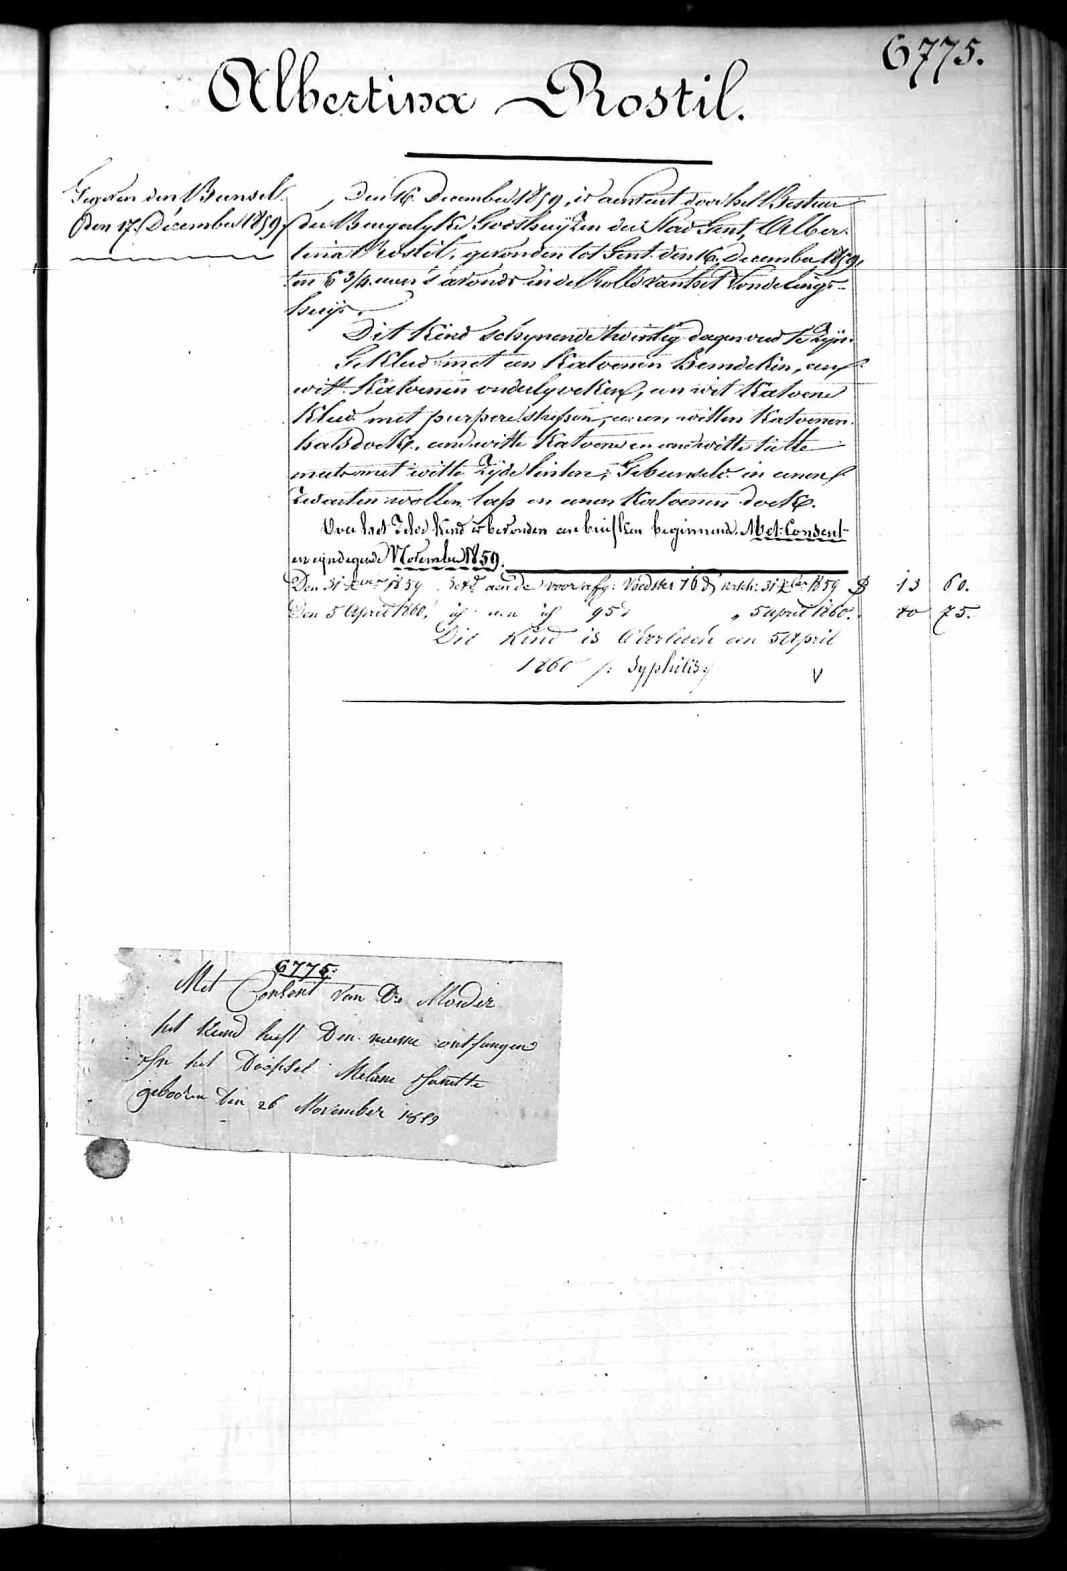 6775.
Albertina Rostil.
Gegeven den Bunsel
den 17. December 1859
Den 16 December 1859, is aenveerd door het Bestuur
der Burgerlyke Godshuijzen der Stad Gent, Alber-
tina Rostil, gevonden tot Gent den 16 December 1859,
ten 6 3/4 uren 's avonds in de Rolle van het Vondelings-
huijs.
Dit Kind schynende twintig dagen oud te zyn.
Gekleed met een Katoenen hemdekin, een
wit Katoenen onderlyveken, een wit Katoene
Kleed met purpere streepen, eenen witten Katoenen
halsdoek, eene witte Katoene en eene witte tulle
muts met witte Zyde linten; Gebunseld in eenen
zwarten wollen lap en eenen Katoenen doek.
Voor het Zelve Kind is bevonden een briefken beginnende Met Consent
en eijndigende November 1859.
Den 31 Xber 1859 aen de voedster 16 d. 31 Xber 1859 13 60.
Den 5 April 1860, id. aen id. 95 d " 5 april 1860. 80 75.
Dit Kind is Overleden den 5 April
1860 Syphilis
V
6775.
Met Consent van De Moeder
het Kind heeft Den naeme ontfangen
In het Doopsel Melanie
geboren Den 26 November 1859